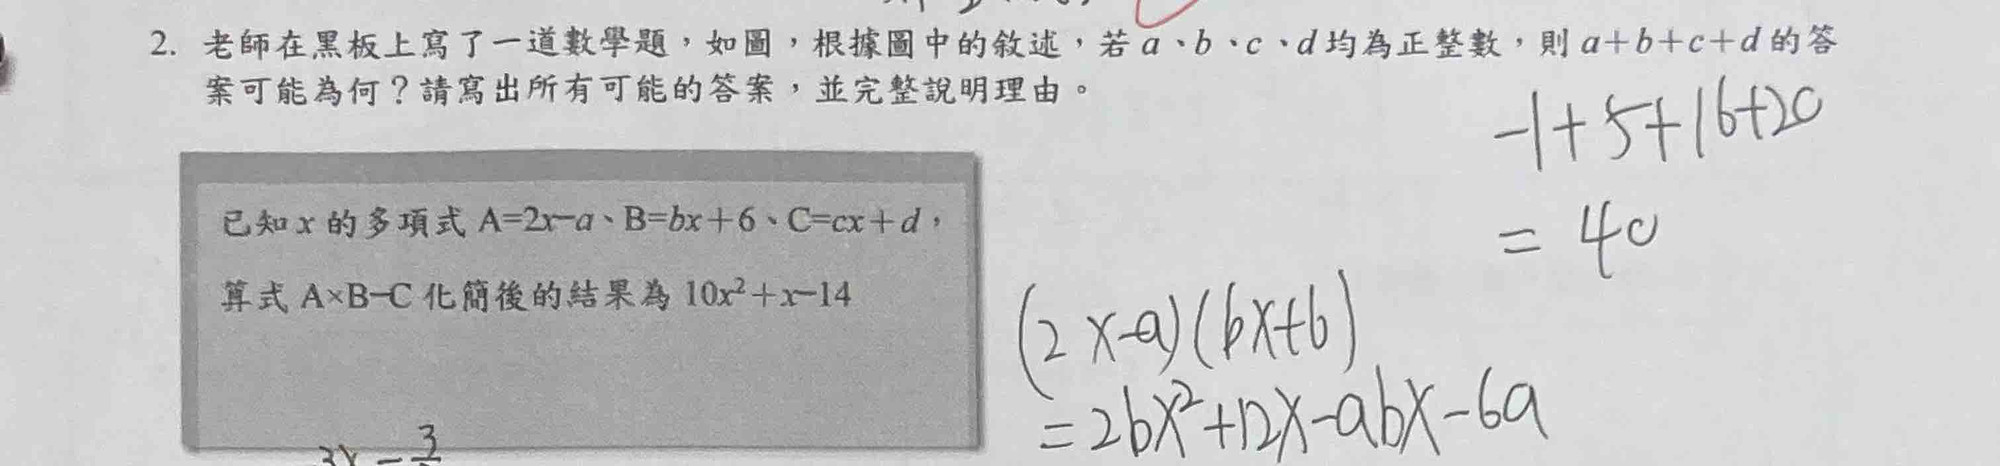 2. 老師在黑板上寫了一道數學題，如圖，根據圖中的敘述，若 a、b、c、d 均為正整數，則 a+b+c+d 的答
案可能為何？請寫出所有可能的答案，並完整說明理由。
-1+5+16+20
= 40
已知 x 的多項式 A=2x-a、B=bx+6、C=cx+d，
算式 A×B-C 化簡後的結果為 10x²+x-14
(2x-a)(bx+6)
=2bx²+12x-abx-6a
3x - 3